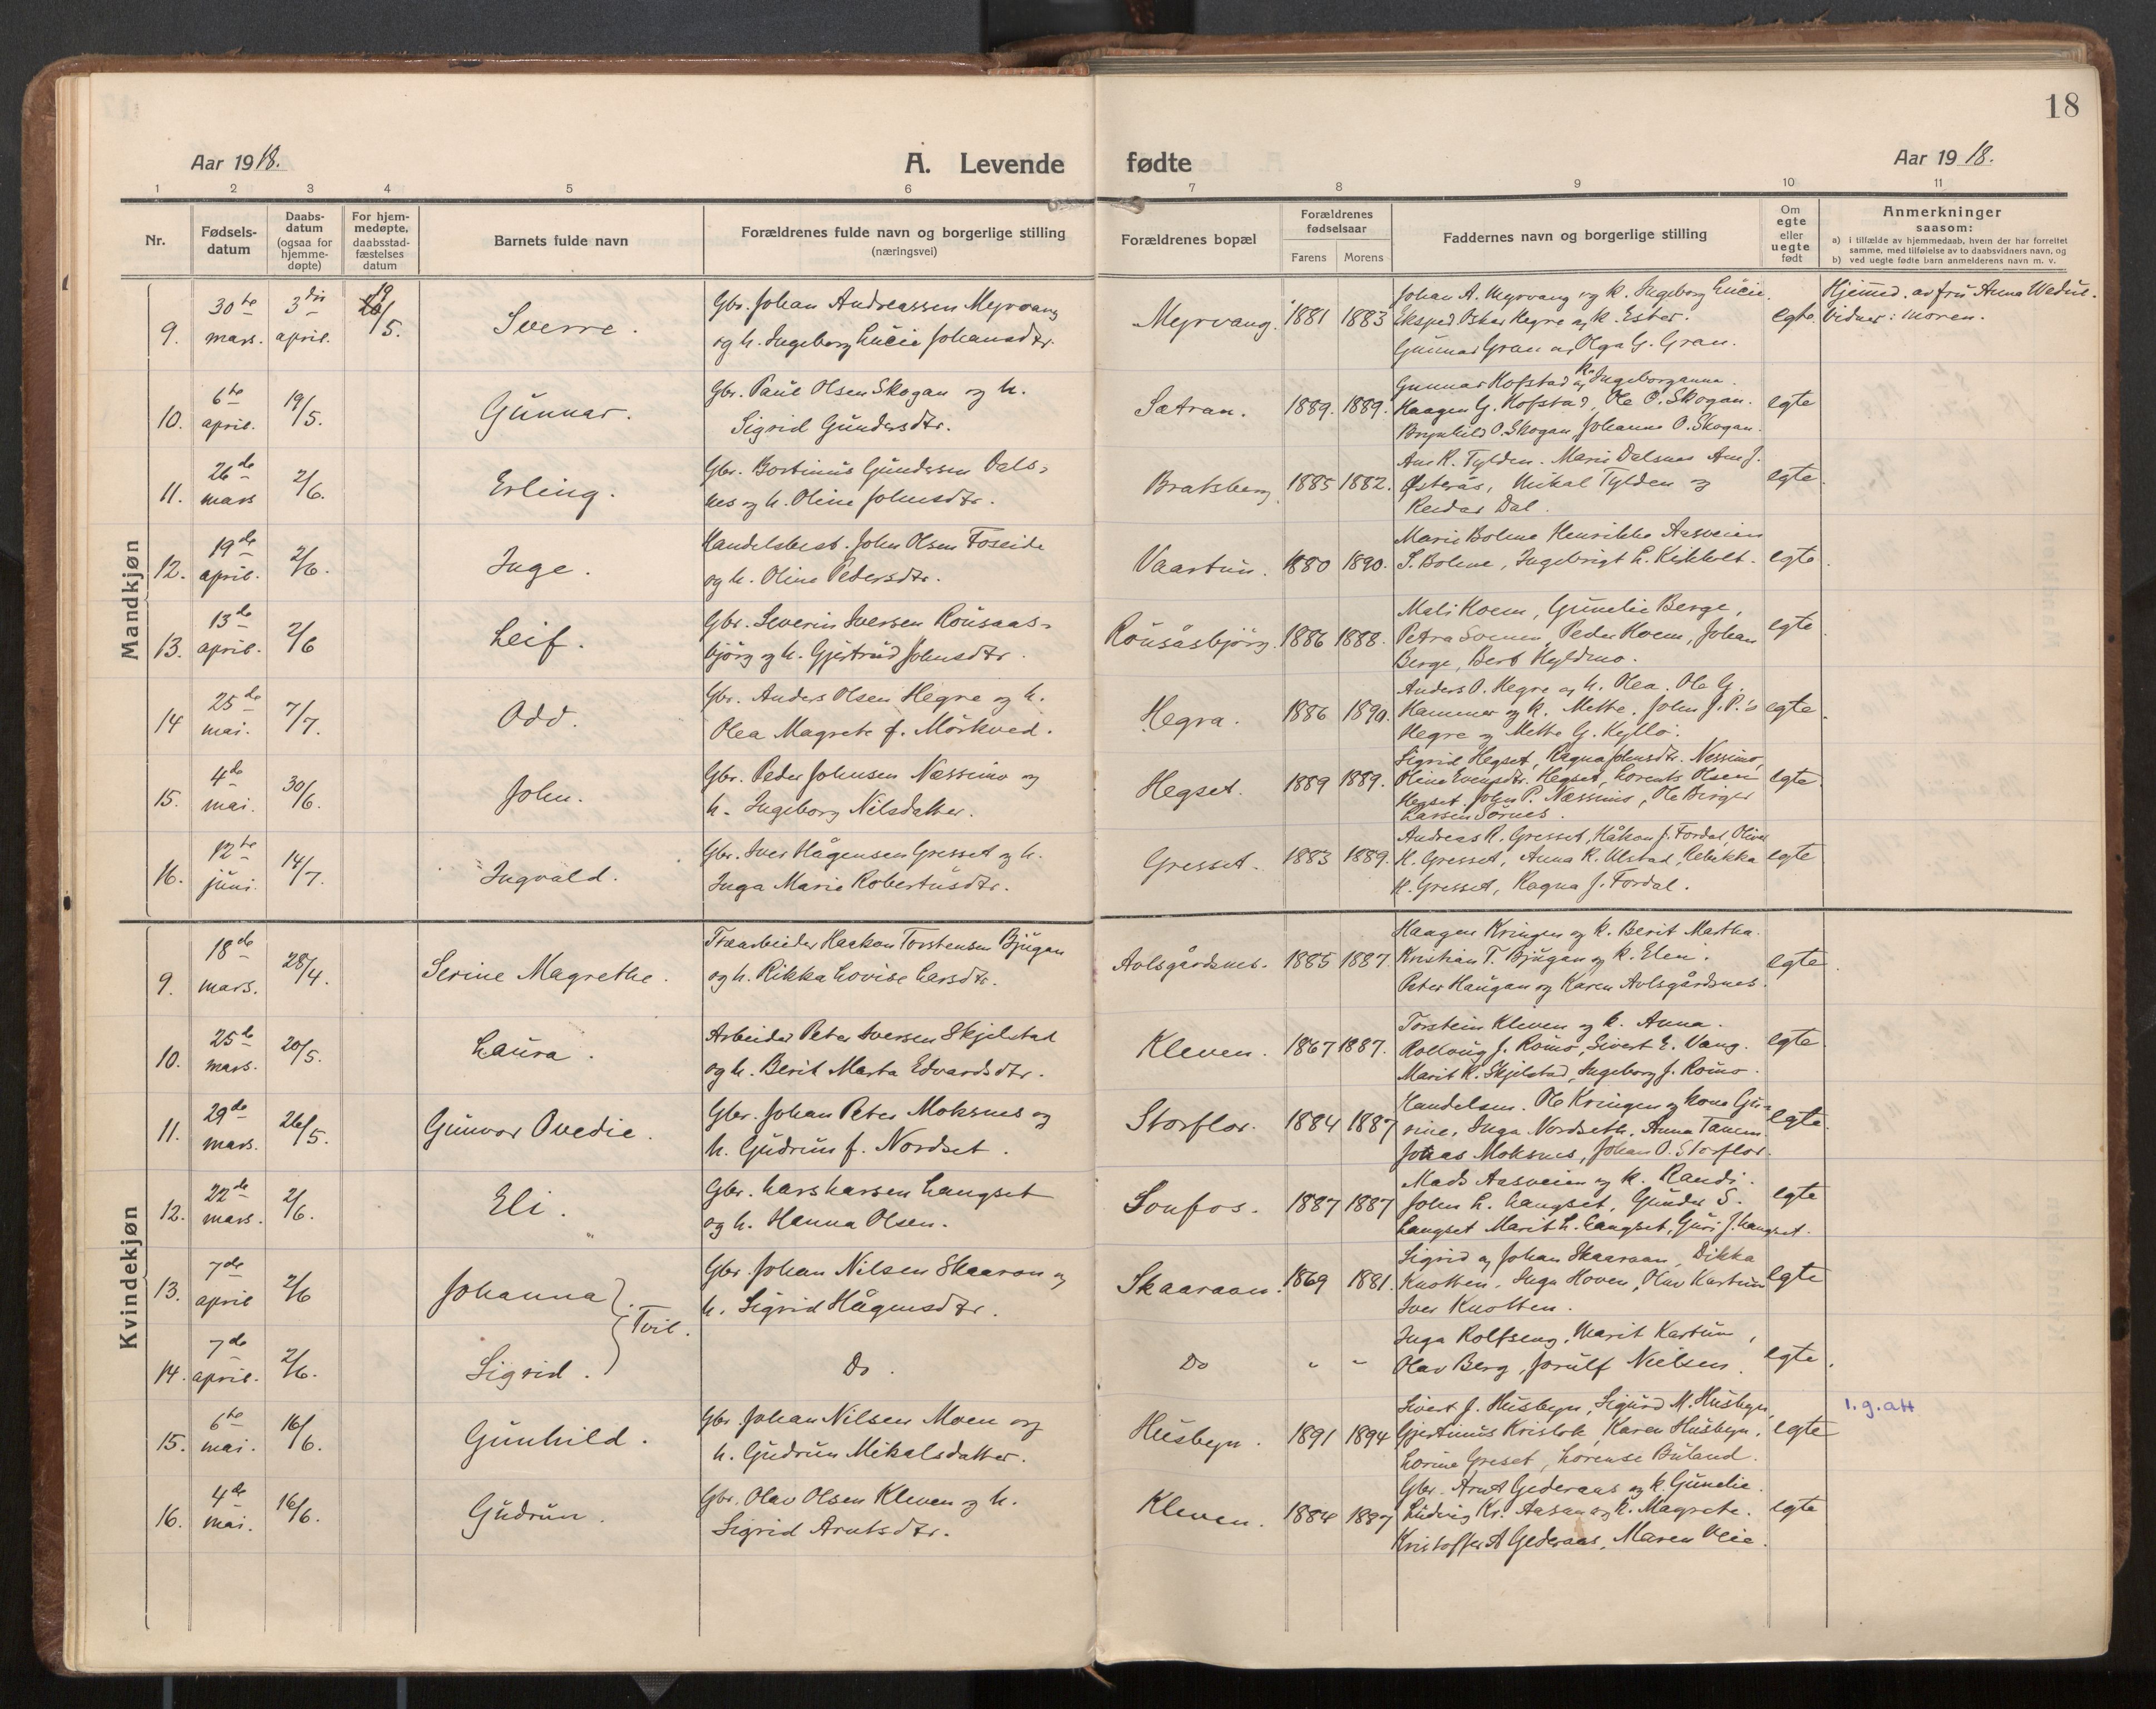 18
Aar 1918.
A. Levende fødte
Aar 1918.
1 2 3 4 5 6 7 8 9 10 11
Nr.
Fødsels-
datum
Daabs-
datum
(ogsaa for
hjemme-
døpte)
For hjem-
medøpte,
daabsstad-
fæstelses
datum
Barnets fulde navn
Forældrenes fulde navn og borgerlige stilling
(næringsvei)
Forældrenes bopæl
Forældrenes
fødselsaar
Farens Morens
Faddernes navn og borgerlige stilling
Om
egte
eller
uegte
født
Anmerkninger
saasom:
a) i tilfælde av hjemmedaab, hvem der har forrettet
samme, med tilføielse av to daabsvidners navn, og
b) ved uegte fødte barn anmelderens navn m. v.
Mandkjøn
9. 30te mars. 3die april. 19/5. Sverre.
Gbr. Johan Andreassen Myrvang
og h. Ingeborg Lucie Johansdtr.
Myrvang. 1881 1883
Johan A. Myrvang og k. Ingeborg Lucie.
Eksped Oskar Hegre og k. Ester.
Gunnar Gran og Olga G. Gran.
egte.
Hjemmed. av fru Anna Wedul.
Vidner: moren.
10. 6te april. 19/5. Gunnar.
Gbr. Paul Olsen Skogan og h.
Sigrid Gundersdtr.
Sætran. 1889. 1889.
Gunnar Hofstad og k. Ingeborganna.
Haagen G. Hofstad, Ole O. Skogan.
Brynhild O. Skogan Johanna O. Skogan.
egte
11. 26de mars 2/6. Erling.
Gbr. Bortinus Gundersen Dals-
nes og h. Oline Johnsdtr.
Bratsberg 1885 1882.
Ane K. Tylden. Marie Dalsnes Ane J.
Østerås, Mikal Tylden og
Reidar Dal.
egte.
12. 19de april. 2/6. Inge.
Handelsbest. John Olsen Foseide
og h. Oline Pedersdtr.
Vaartun. 1880 1890.
Marie Bolme Henrikke Aasveien
S. Bolme, Ingebrigt L. Kirkholt.
egte.
13. 13de april. 2/6 Leif.
Gbr. Severin Iversen Rousaas-
bjørg og h. Gjertrud Johnsdtr.
Rousåsbjörg. 1886 1888.
Mali Hoem, Gunelie Berge,
Petra Svenen Peder Hoem, Johan
Berge, Bert Hyldmo.
egte.
14 25de mai. 7/7. Odd.
Gbr. Anders Olsen Hegre og h.
Olea Magrete f. Mörkved.
Hegra. 1886 1890.
Anders O. Hegre og h. Olea. Ole G.
Hammer og k. Mette. John J. P.'s
Hegre og Mette G. Kyllo.
egte.
15. 4de mai. 30/6. John.
Gbr. Peder Johnsen Næssimo og
h. Ingeborg Nilsdatter.
Hegset. 1889 1889.
Sigrid Hegset, Ragna Johnsdtr. Nessimo,
Oline Evensdtr. Hegset, Lorents Olsen
Hegset. John P. Næssimo, Ole Birger
Larsen Sörnes.
egte.
16. 12te juni. 14/7. Ingvald.
Gbr. Iver Hågensen Gresset og h.
Inga Marie Robertusdtr.
Gresset. 1883 1889.
Andreas R. Gresset, Håkon J. Fordal, Oliver
H. Gresset, Anna K. Ulstad, Rebekka
H. Gresset, Ragna J. Fordal.
egte
Kvindekjøn
9. 18de mars. 28/4. Serine Magrethe.
Træarbeider Haakon Torstensen Bjugan
og h. Rikka Lovise Larsdtr.
Avlsgårdsnes. 1885 1887.
Haagen Kringen og k. Berit Martha.
Kristian T. Bjugan og k. Elen.
Peter Haugan og Karen Avlsgårdsnes.
egte.
10. 25de mars. 20/5. Laura.
Arbeider Peter Iversen Skjelstad
og h. Berit Marta Edvardsdtr.
Kleven. 1867 1887.
Torstein Kleven og k. Anna.
Rollaug J. Romo, Sivert E. Vang.
Marit K. Skjelstad, Ingeborg J. Romo.
egte
11. 29de mars. 26/5. Gunvor Ovedie.
Gbr. Johan Peter Moksnes og
h. Gudrun f. Nordset.
Storflor. 1884 1887
Handelsm. Ole Kringen og kone Gu-
rine, Inga Nordseth. Anna Tanem
Jonas Moksnes, Johan O. Storflor.
egte.
12. 22de mars. 2/6. Eli.
Gbr. Lars Larsen Langset
og h. Hanna Olsen.
Sonfos. 1887 1887
Mads Aasveien og k. Randi.
John L. Langset, Gunder S.
Langset Marit L. Langset, Guri J. Langset.
egte
13. 7de april 2/6 Johanna } Tvil.
Gbr. Johan Nilsen Skaaron og
h. Sigrid Hågensdtr.
Skaaraan. 1869 1881.
Sigrid og Johan Skaaraan, Dikka
Knotten. Inga Hoven, Olav Kartun
Iver Knotten.
egte
14. 7de april. 2/6. Sigrid.
Do.
Do " "
Inga Rolfseng, Marit Kartun,
Olav Berg, Jorulf Nielsen.
egte.
15. 6te mai. 16/6. Gunhild.
Gbr. Johan Nilsen Moen og
h. Gudrun Mikalsdatter.
Husbyn. 1891 1894
Sivert J. Husbyn, Sigurd M. Husbyn,
Gjertinus Kristvk, Karen Husbyn.
Lorine Greset, Lorense Buland.
egte
1. g. att
16. 4de mai. 16/6. Gudrun.
Gbr. Olav Olsen Kleven og h.
Sigrid Arntsdtr.
Kleven. 1884 1887
Gbr. Arnt Gederaas og k. Gunelie.
Ludvig Kr. Aasan og k. Magrete.
Kristoffer A Gederaas, Maren Veie.
egte